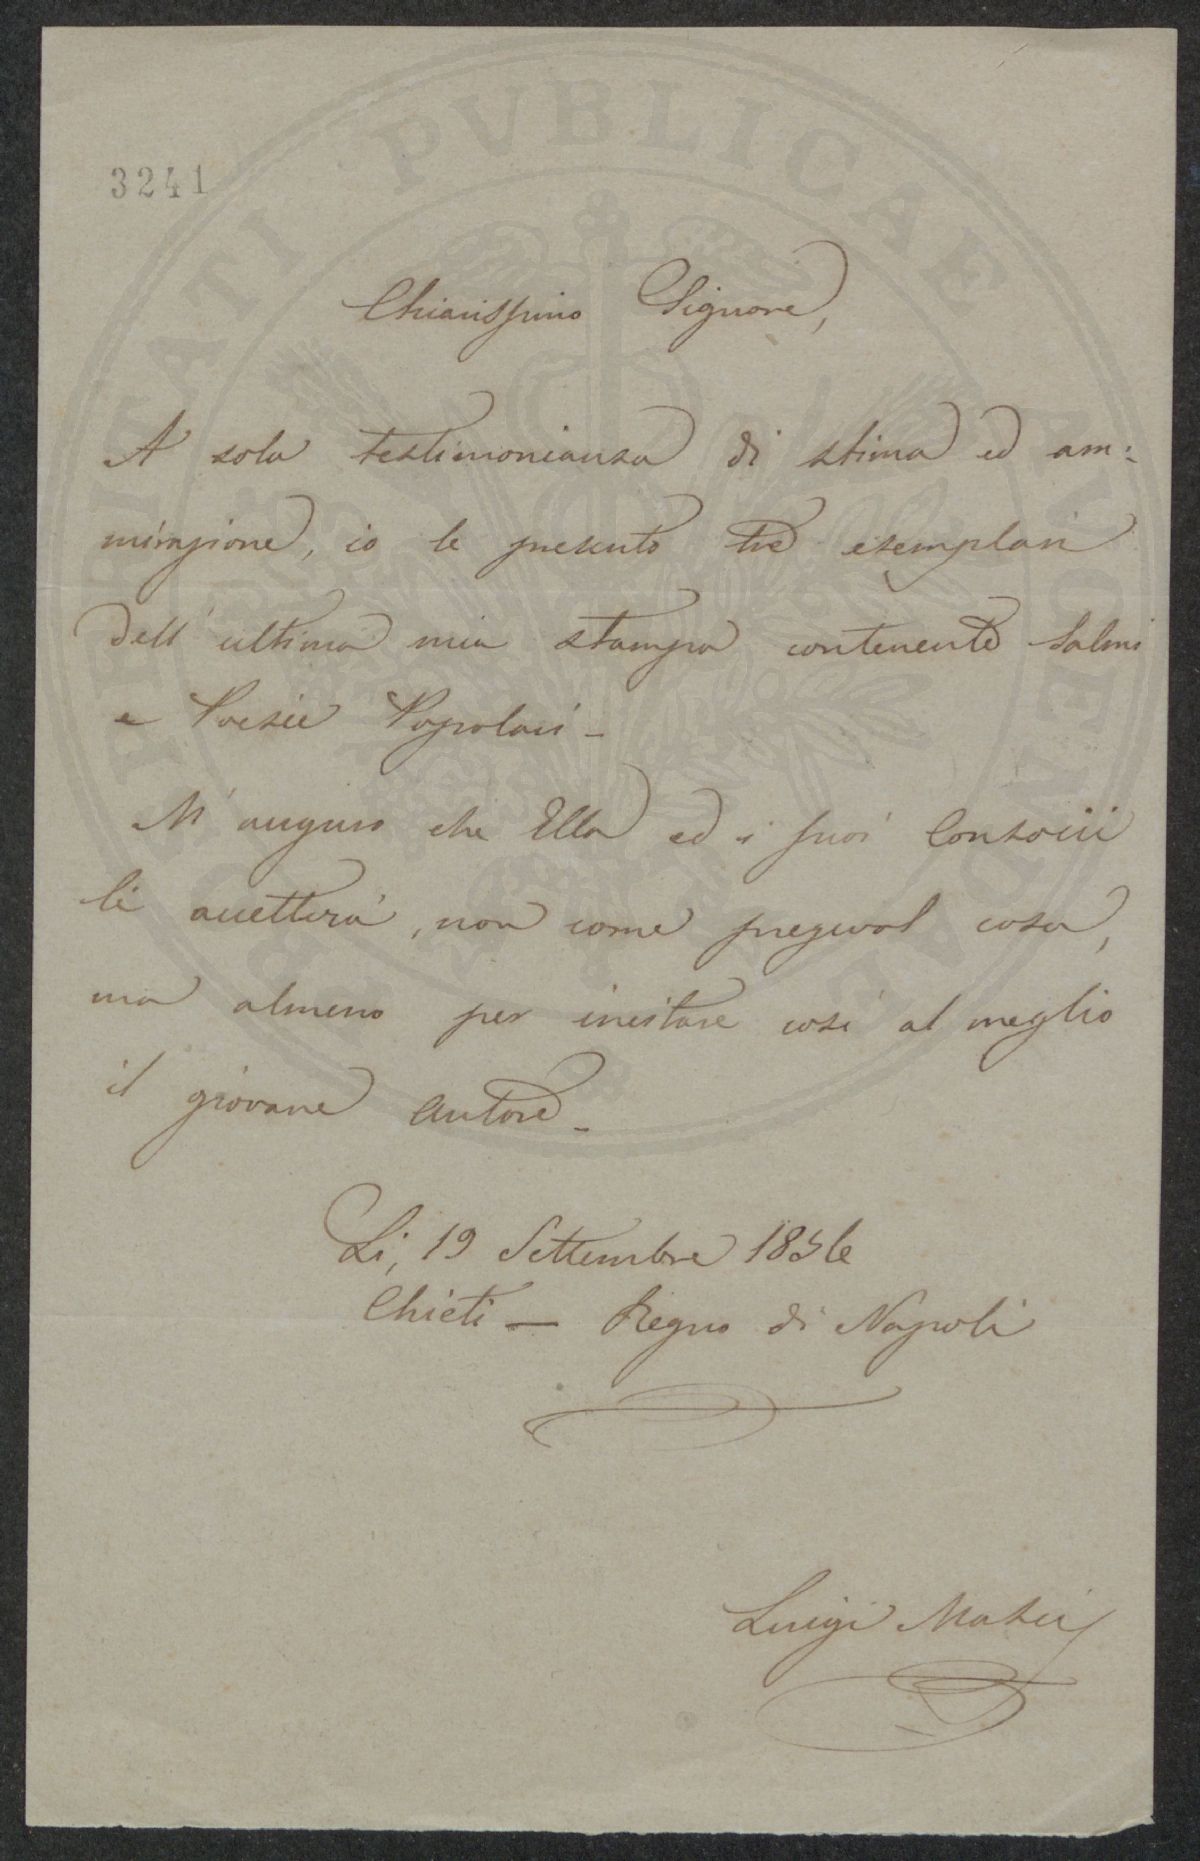 3241
Chiarissimo Signore,
A sola testimonianza di stima ed am:
mirazione, io le presento tre esemplari
dell'ultima mia stampa contenente Salmi
e Poesie Popolari -
M'auguro che Ella ed i suoi Consocii
li accetterà, non come pregevol cosa,
ma almeno per incitare così al meglio
il giovane autore -
Li, 19 Settembre 1856
Chieti — Regno di Napoli
Luigi Masci